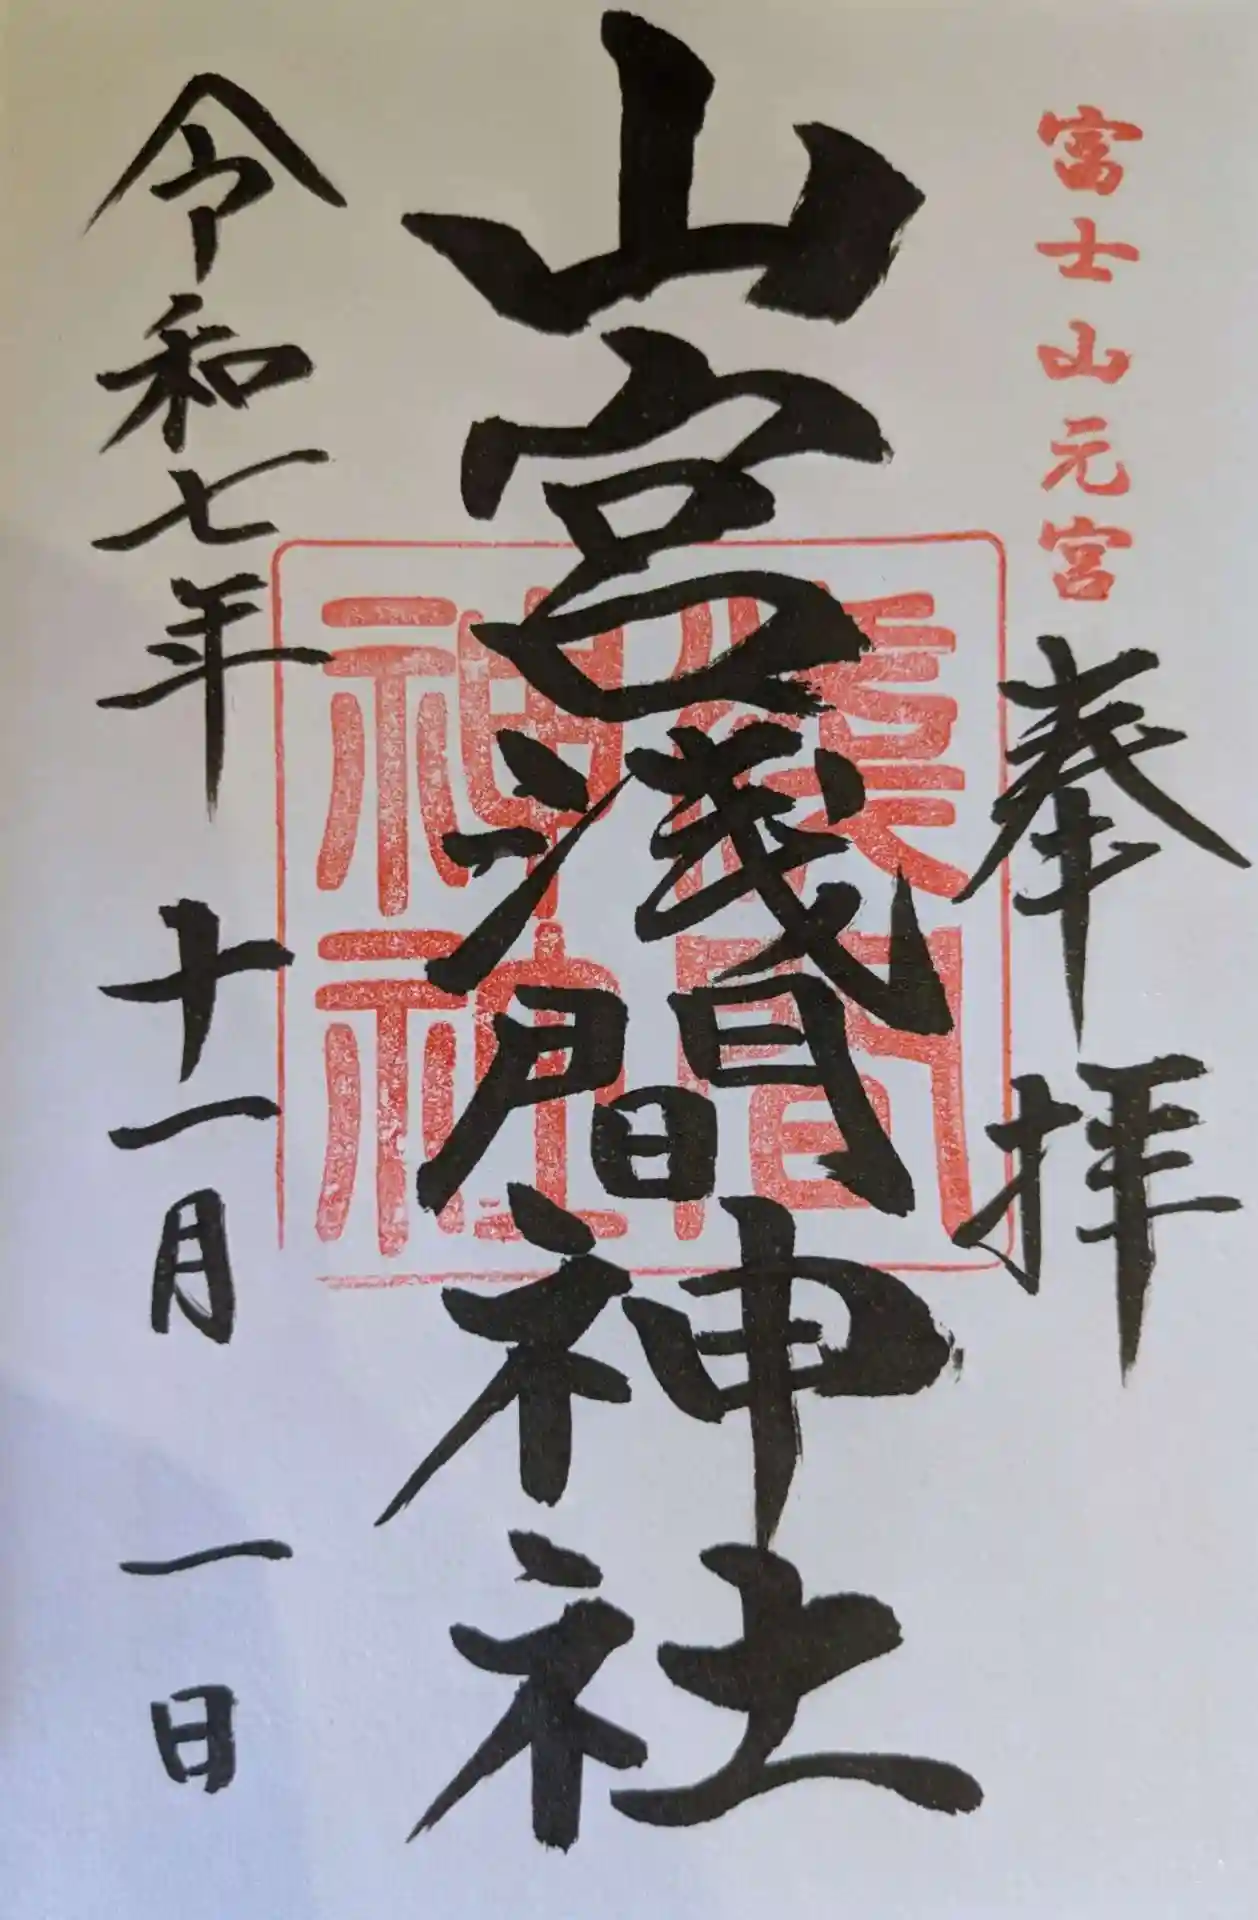 富士山元宮
奉拝
山宮浅間神社
浅間
神社
令和七年十一月一日